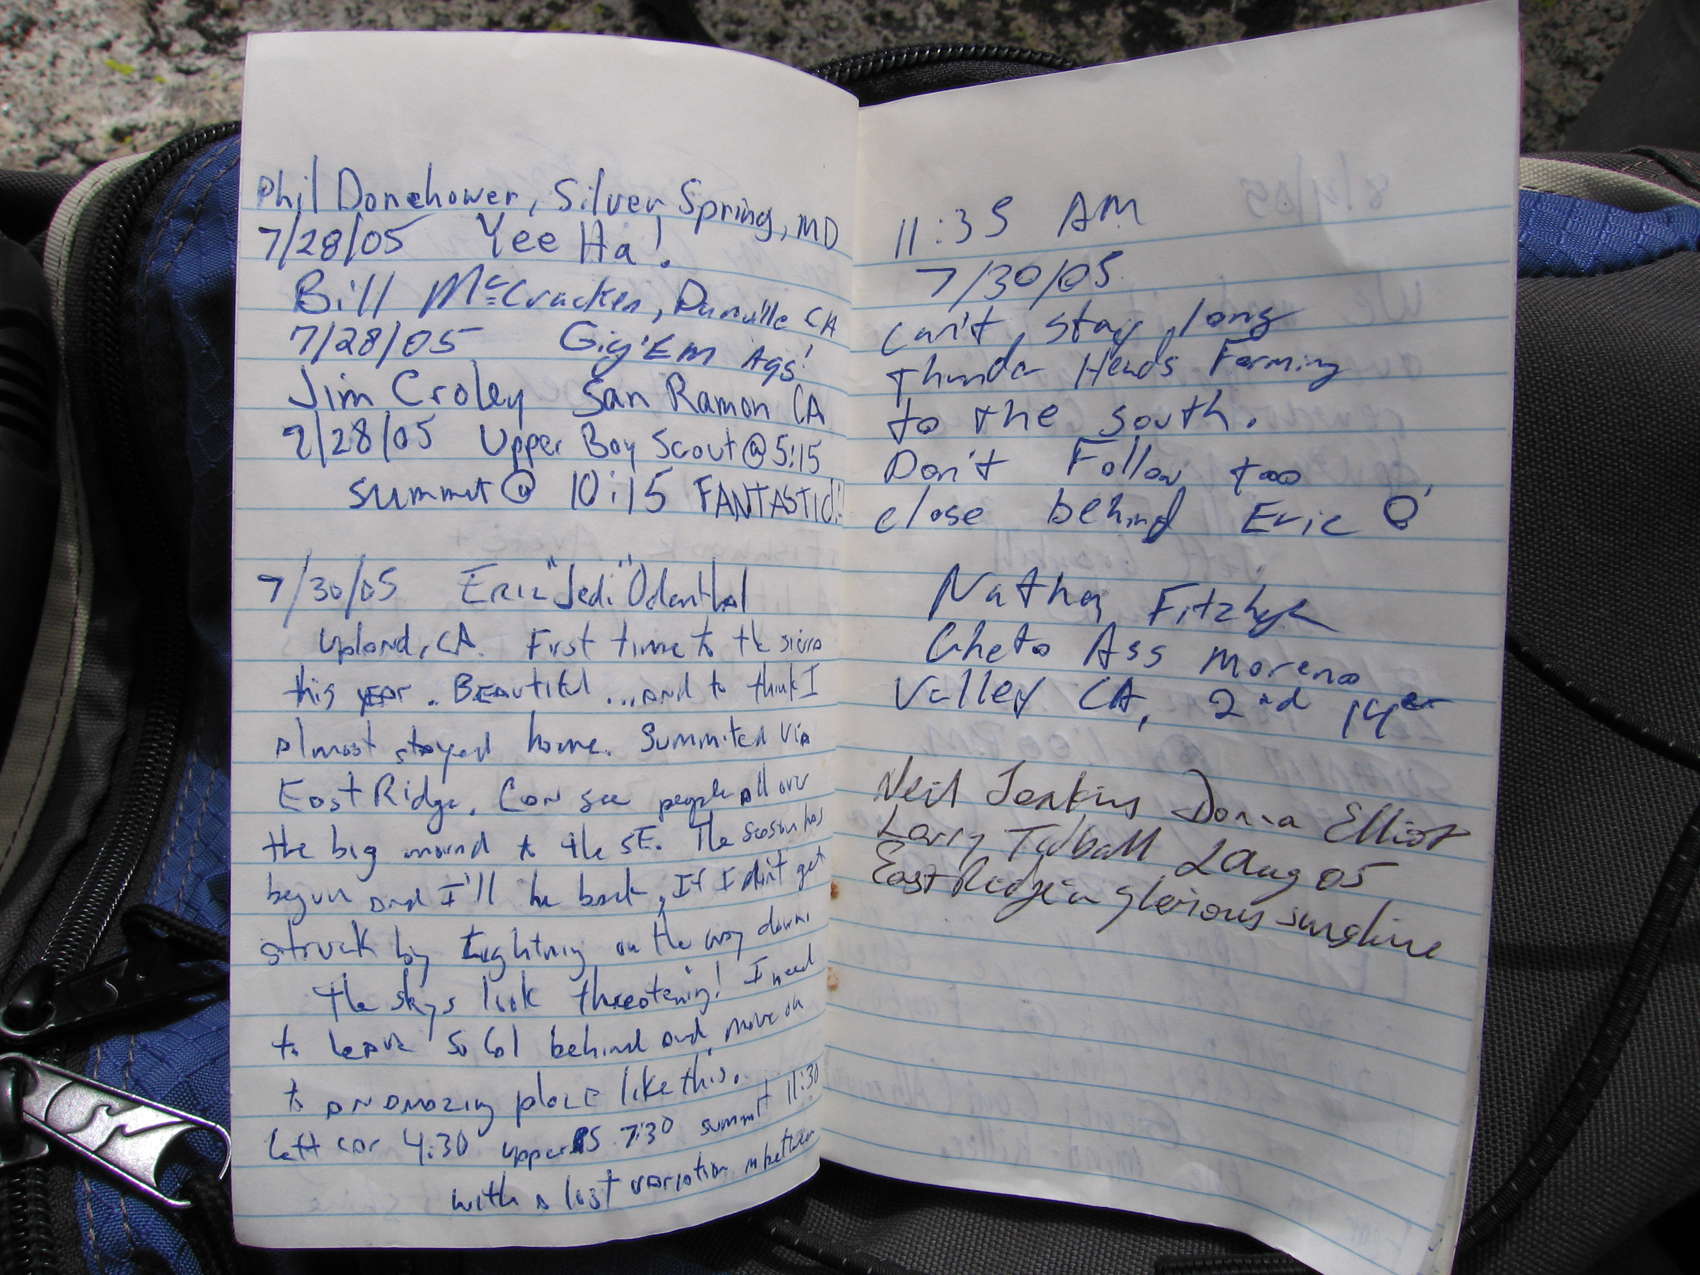 Phil Donehower, Silver Spring, MD
7/28/05 Yee Ha!
Bill McCracken, Danville CA
7/28/05 Gig'Em Ags!
Jim Croley San Ramon CA
7/28/05 Upper Boy Scout @ 5:15
summit @ 10:15 FANTASTIC!
7/30/05 Eric "Jedi" Odenthal
Upland, CA. First time to the sierra
this year. Beautiful ...and to think I
almost stayed home. Summited via
East Ridge. Can see people all over
the big mound to the SE. The season has
begun and I'll be back, If I don't get
struck by Lightning on the way down.
The skys look threatening! I need
to leave So Cal behind and move on
to an amazing place like this.
Left car 4:30 upper BS 7:30 summit 11:30
with a lost variation in between
11:35 AM
7/30/05
Can't stay long
Thunder Heads Forming
to the south.
Don't Follow too
close behind Eric
Nathan Fitzhugh
Gheto Ass Moreno
Valley CA, 2nd 14er
Neil Jenkins Donna Elliot
Larry Talbott 2 Aug 05
East Ridge in glorious sunshine